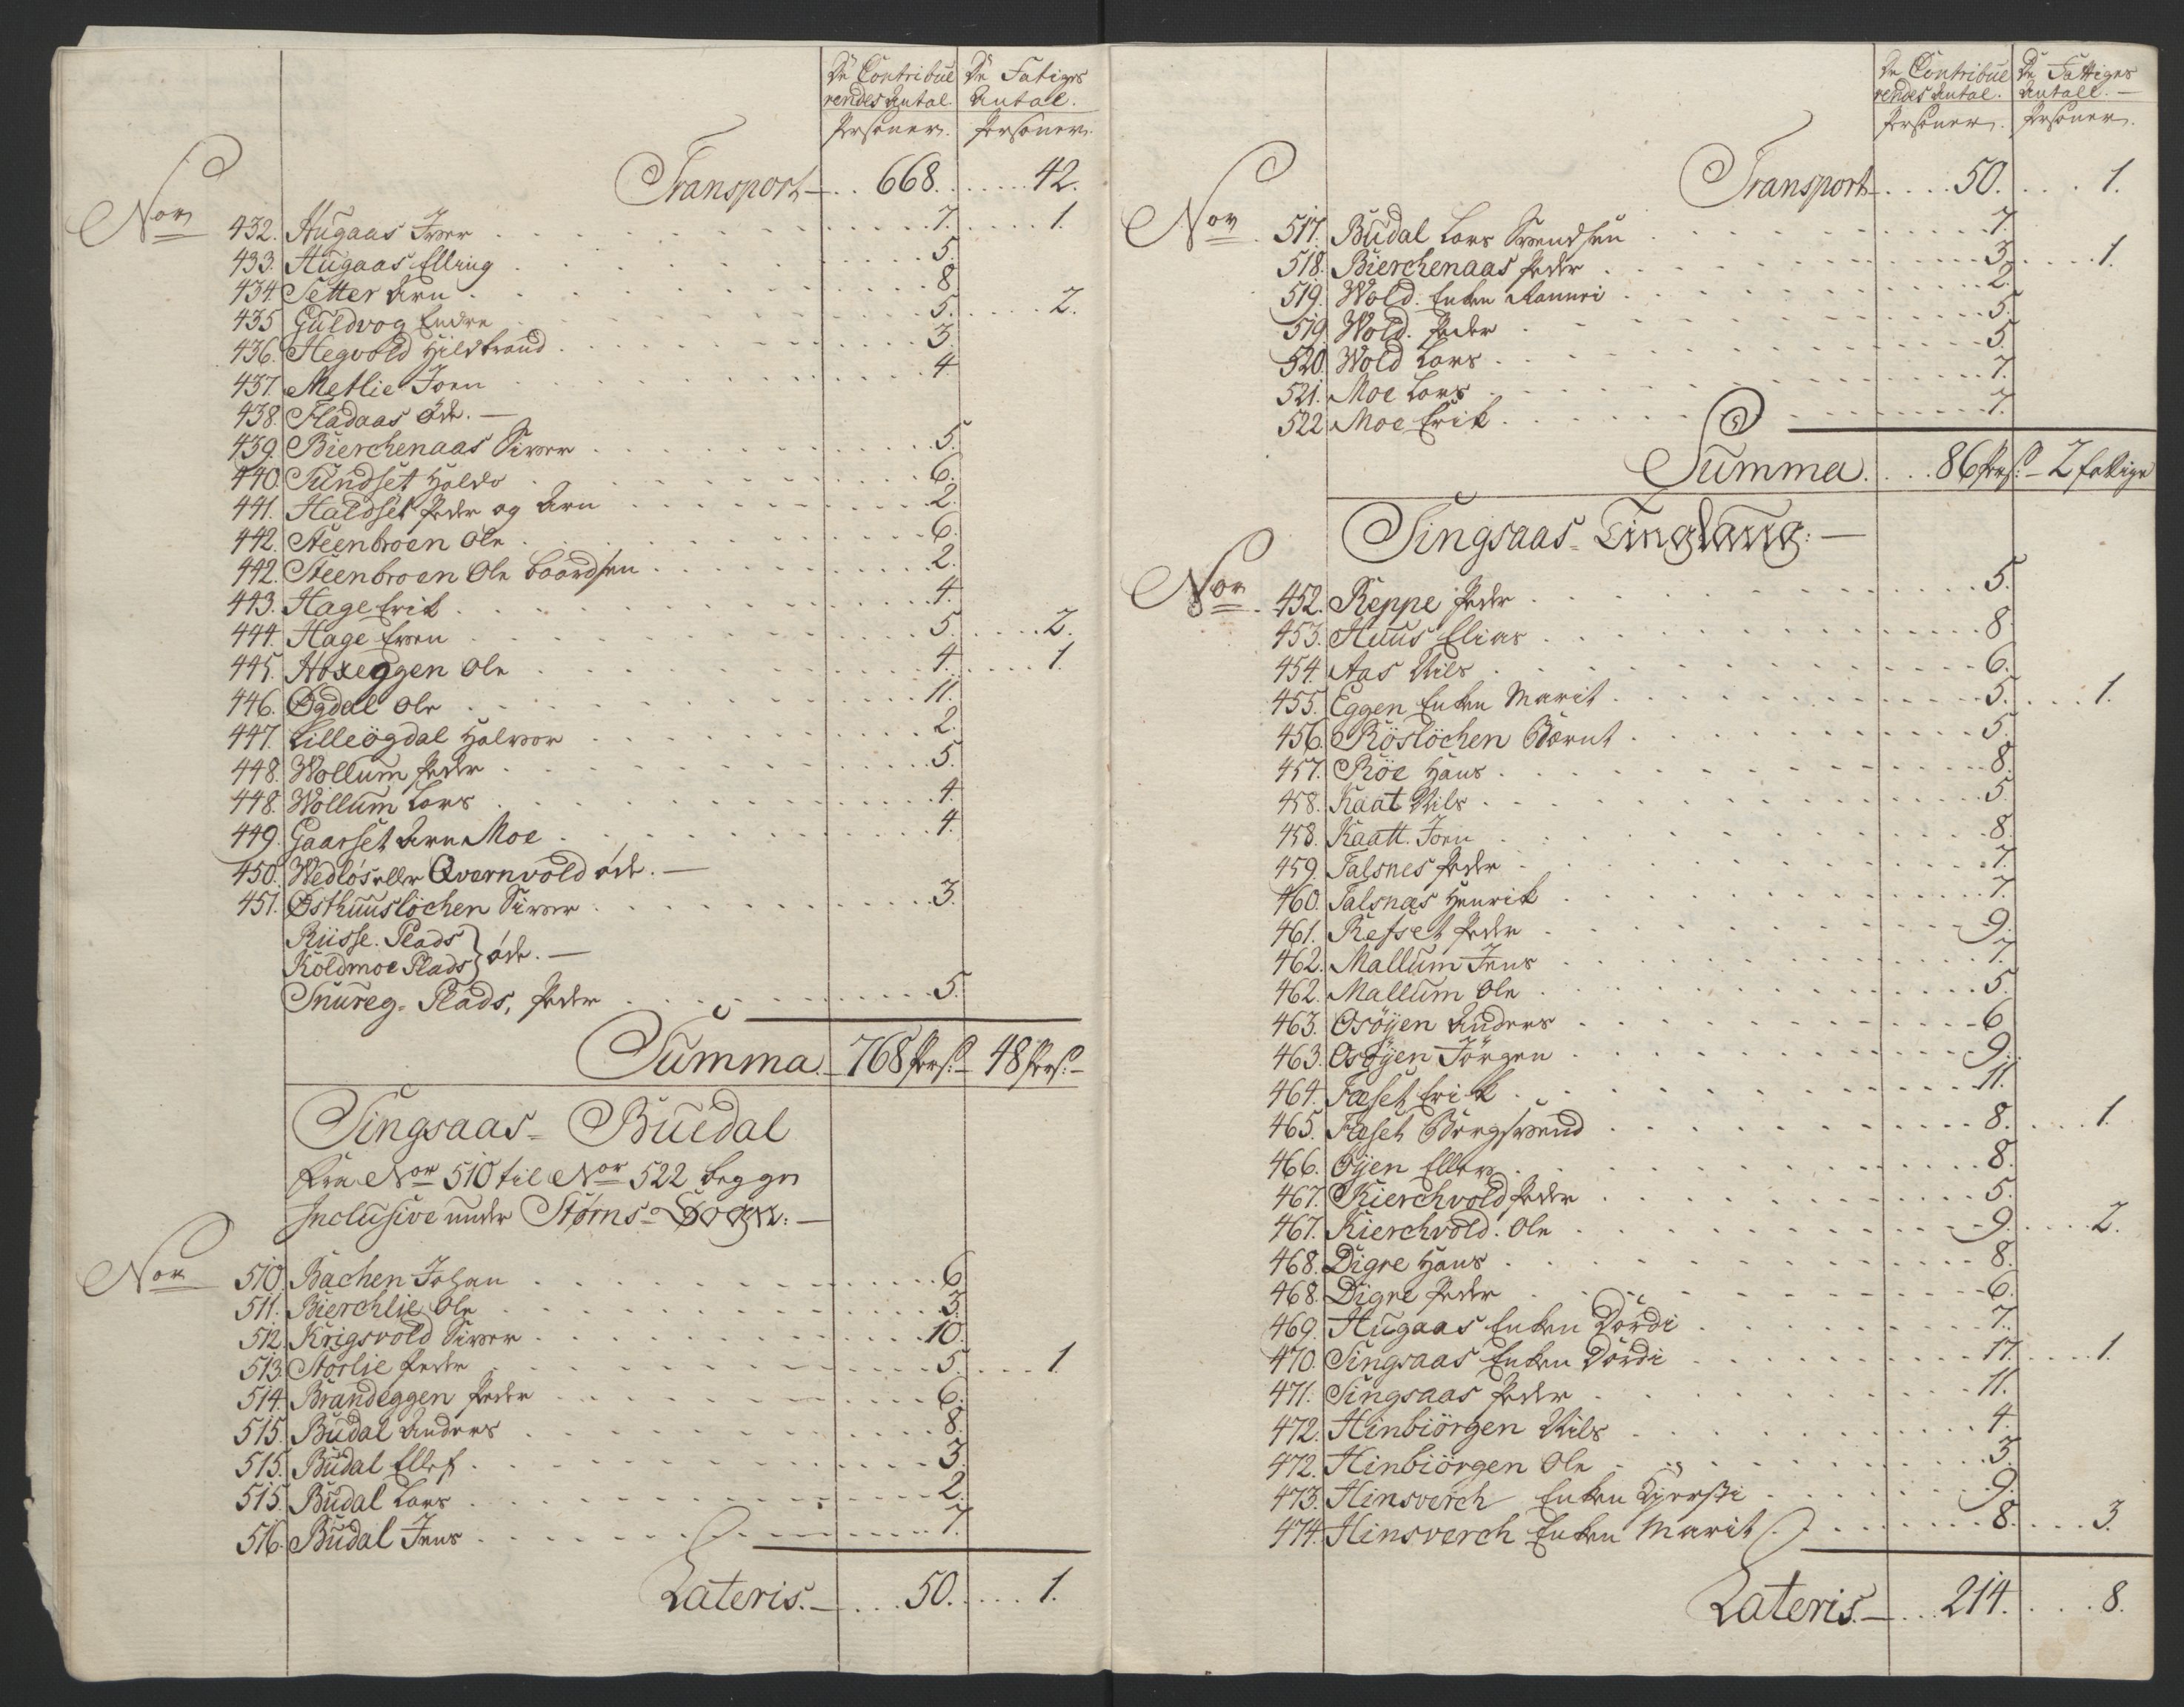 De Contribue De Fatiges
rendes Antal. Antal.
Personer. Personer.
Transport 668. 42.
Nor
432. Hugaas Iver 7. 1.
433. Hugaas Elling 5.
434 Setter Arn 8
435 Guldvog Endre 5. 2.
436. Hegvold Hildbrand 3.
437. Metlie Joen 4
438. Fladaas Øde.
439. Bierchenaas Siver 5.
440. Sundset Haldo 6.
441. Haldset Peder og Arn 2.
442. Steenbroen Ole 6.
442. Steenbroen Ole Baardsen 2.
443. Hage Erik 4.
444. Hage Even 5. 2.
445. Hoxeggen Ole 4. 1.
446. Øgdal Ole 11.
447. Lilleögdal Halvor 2.
448. Wollum Peder 5.
448. Wollum Lars 4.
449. Gaarset Arn Moe 4.
450. Wedlös eller Qvernvold øde.
451. Østhuuslöchen Siver 3.
Riisse. Plads
Koldmoe Plads } øde.
Snureg. Plads, Peder 5.
Summa. 768 Pers: 48 Pers:
Singsaas- Buedal
Fra Nor 510 til Nor 522 begge
Inclusive under Störns- Sogn:
Nor
510. Bachen Johan 6
511. Bierchlie Ole 3.
512. Krigsvold Siver 10.
513. Storlie Peder 5. 1.
514. Brandeggen Peder 6.
515. Budal Anders 8.
515. Budal Ellef 3.
515. Budal Lars 2.
516. Budal Jens 7.
Lateris. 50. 1.
De Contribue De Fattiges
rendes Antal. Antall.
Personer. Personer.
Transport 50. 1.
Nor
517. Budal Lars Svendsen 7.
518. Bierchenaas Peder 3. 1.
519. Wold. Enken Rannei 2.
519. Wold. Peder 5.
520. Wold Lars 5.
521. Moe Lars 7.
522 Moe Erik 7.
Summa. 86 Pers: 2 fattige
Singsaas- Tinglaug:
Nor
452. Reppe Peder 5.
453. Huus Elias 8
454. Aas Nils 6.
455. Eggen Enken Marit 5. 1.
456. Röslöchen Bernt 5.
457. Röe Hans 8.
458. Kaat Nils 5.
458. Kaatt. Joen 8.
459. Talsnes Peder 7.
460. Talsnæs Henrik 7.
461. Refset Peder 9.
462. Mallum Jens 7.
462. Mallum Ole 5.
463. Osöyen Anders 6
463. Osöyen Jörgen 9.
464. Fæset Erik 11.
465. Fæset Bergsvend 8. 1.
466. Öyen Ellev 8.
467. Kierchvold Peder 5.
467. Kierchvold. Ole 9. 2.
468. Digre Hans 8.
468. Digre Peder 6.
469. Hugaas Enken Dördi 7.
470. Singsaas Enken Dördi 17. 1.
471. Singsaas Peder 11.
472. Hinbiörgen Nils 4.
472. Hinbiörgen Ole 3.
473. Hinsverch Enken Kjersti 9.
474. Hinsverch Enken Marit 8. 3.
Lateris. 214. 8.